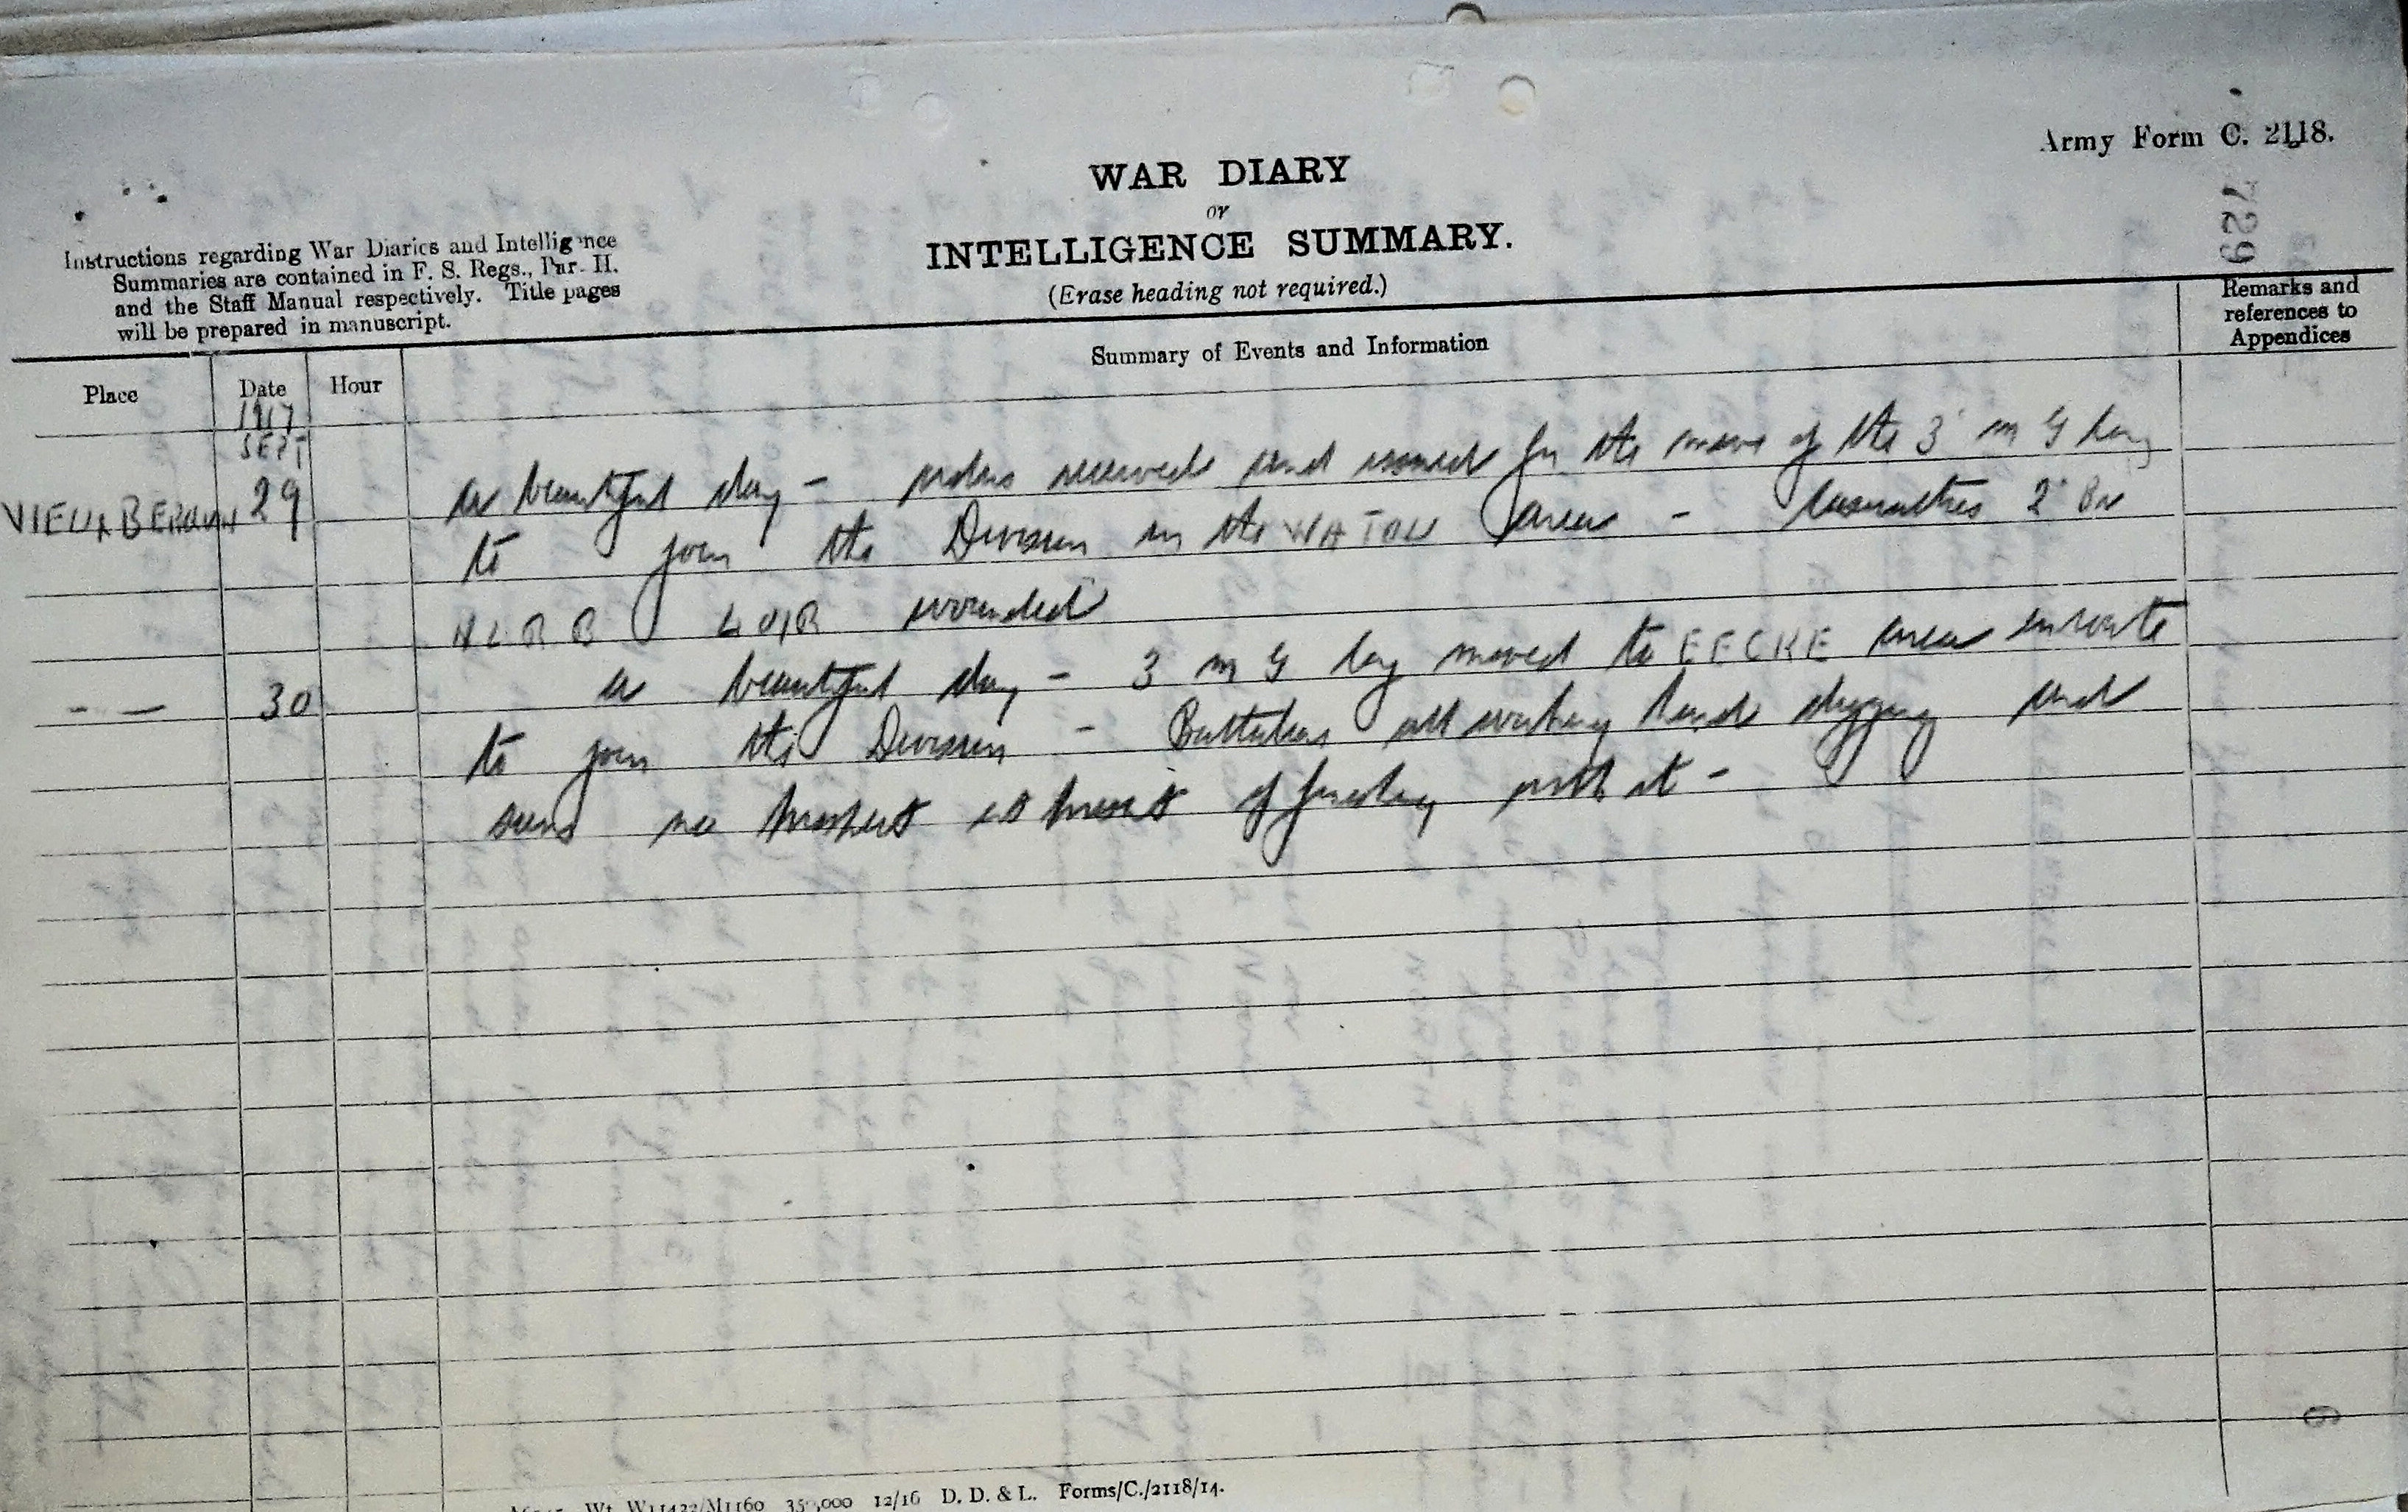 Army Form C. 2118.
729
WAR DIARY
or
INTELLIGENCE SUMMARY.
(Erase heading not required.)
Instructions regarding War Diaries and Intelligence
Summaries are contained in F. S. Regs., Par. II.
and the Staff Manual respectively. Title pages
will be prepared in manuscript.
Place
Date
Hour
Summary of Events and Information
Remarks and
references to
Appendices
1917
SEPT
VIEUX BERQUIN 29 A beautiful day - orders received and issued for the move of the 3 M G Coy
to join the Division in the WATOU area - Casualties 2 Bn
4 O/R wounded
- — 30 A beautiful day - 3 M G Coy moved to EECKE area enroute
to join the Division - Battalions all working hard digging and
seems no prospect at present of finishing with it -
12/16 D. D. & L. Forms/C./2118/14.
6